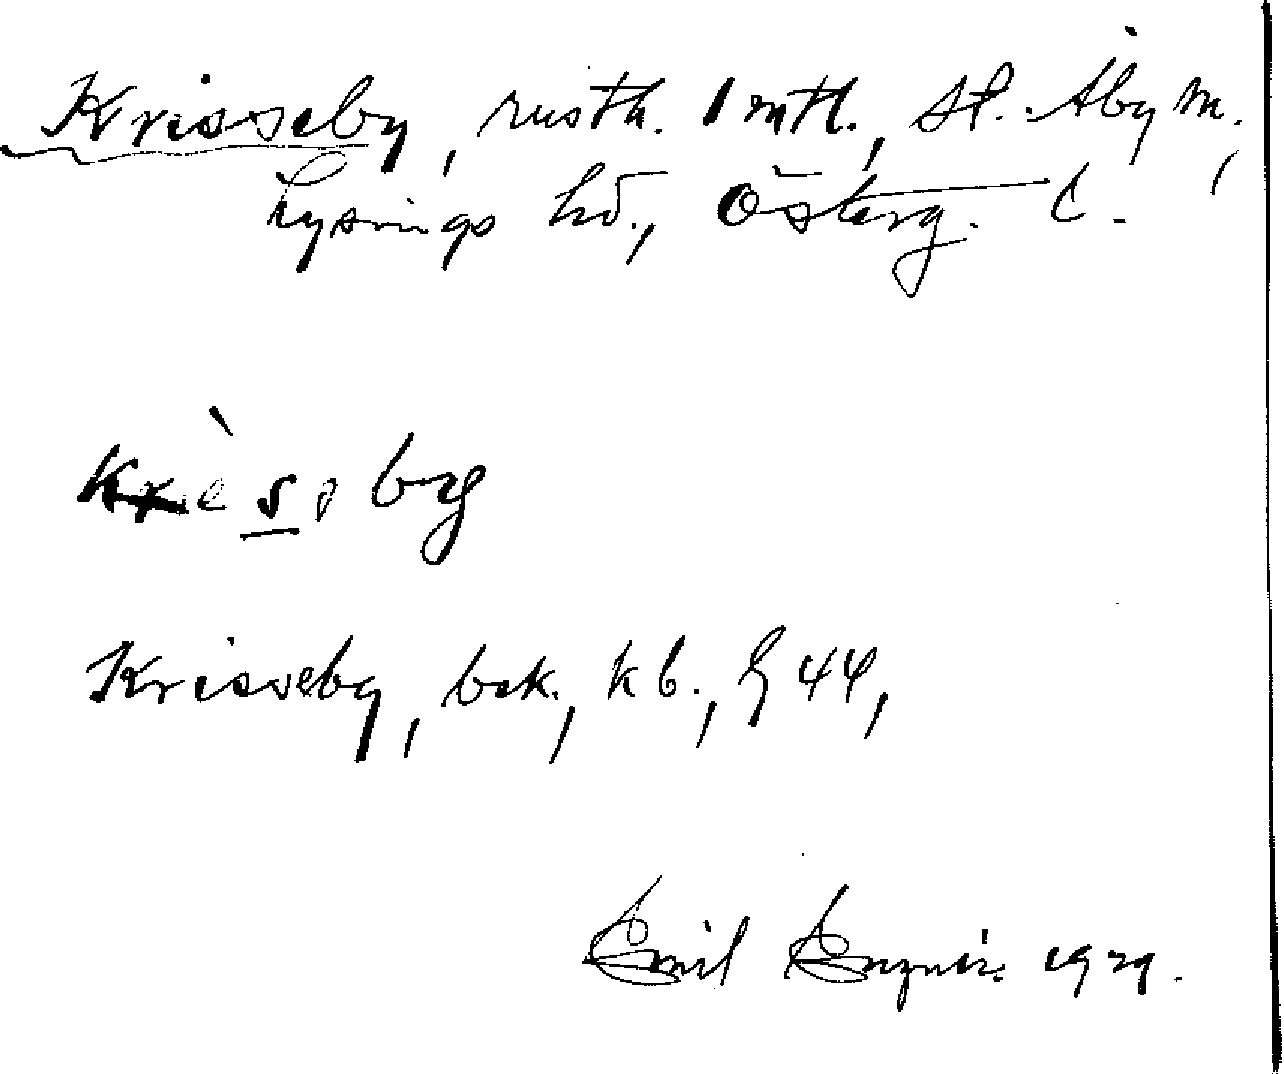 Krisseby, rusth. 1 mtl., St. Åby sn.,
Lysings hd., Österg. l.
Krèsoby
Krisseby, bek., kb., § 44,
Emil 1929.